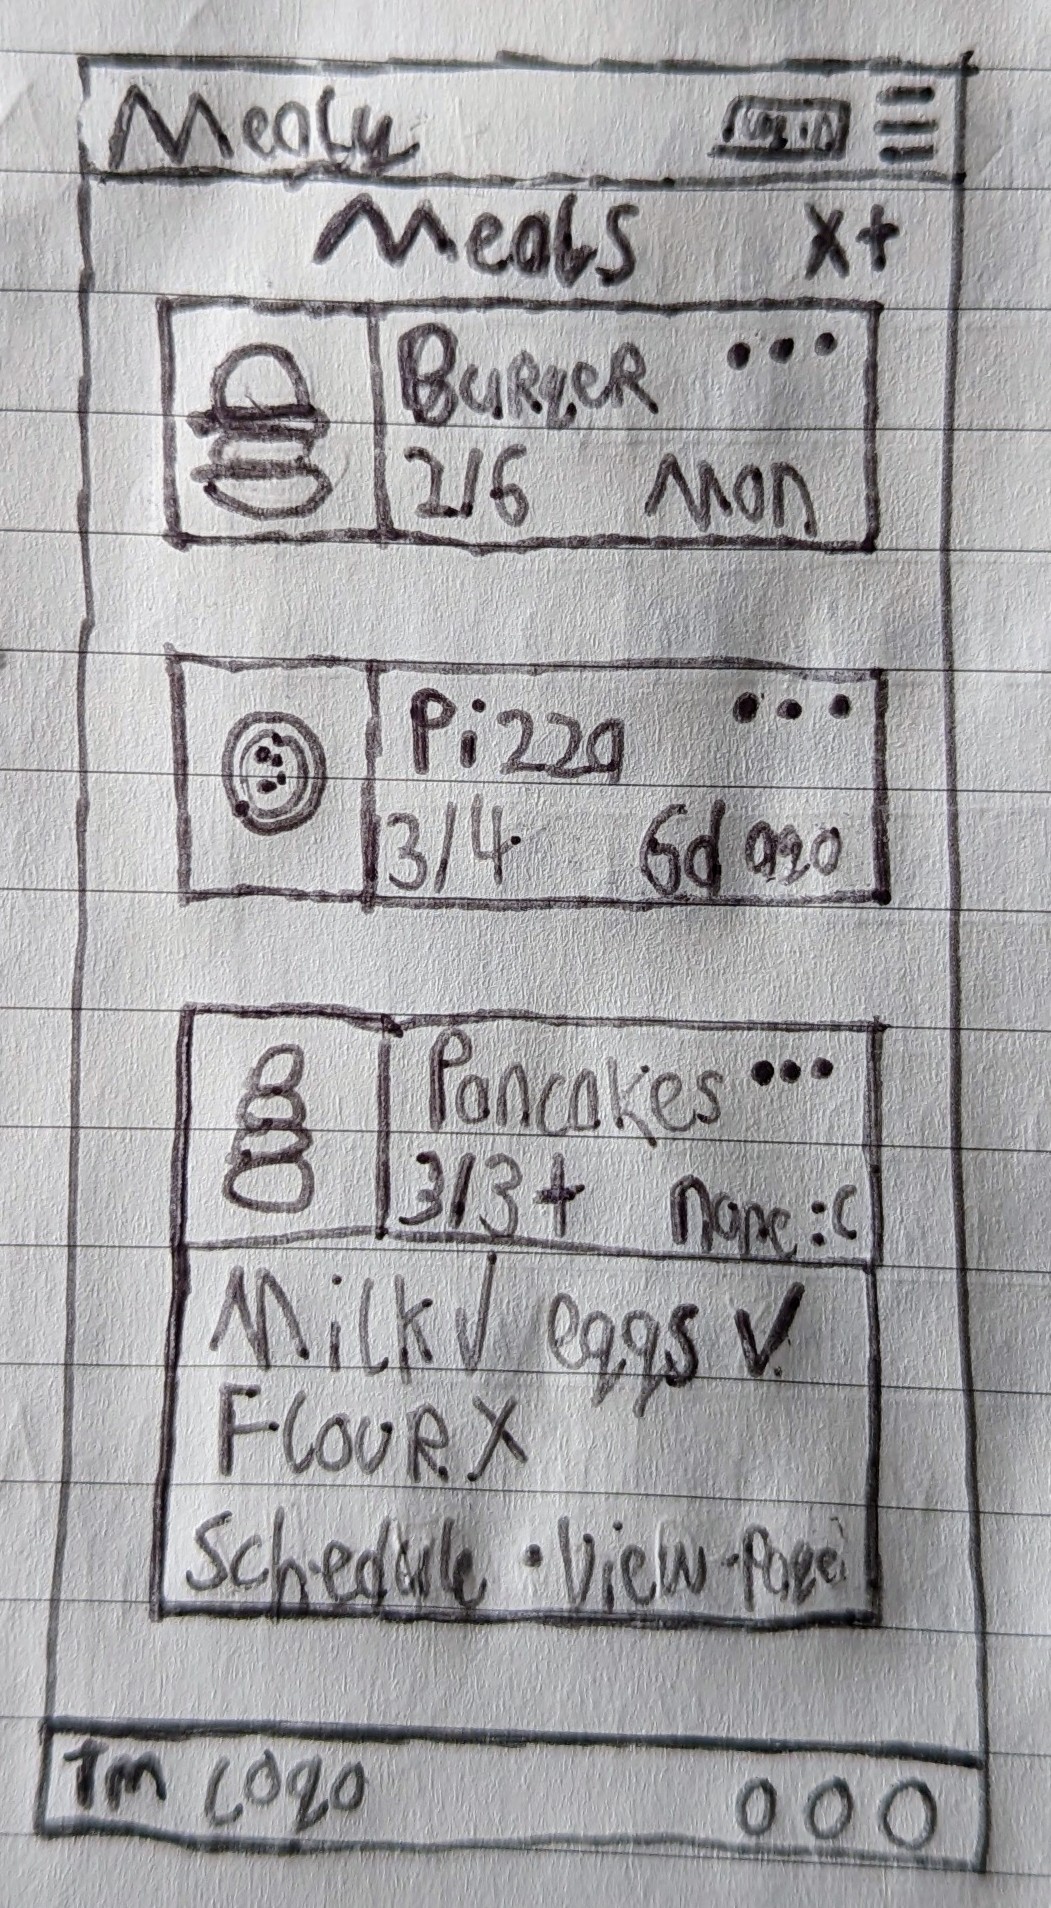 Mealy log in
Meals x+
Burger •••
2/6 Mon
Pizza •••
3/4 6d ago
Pancakes •••
3/3+ none :c
Milk ✓ eggs ✓
Flour X
Schedule • View Page
Tm Logo